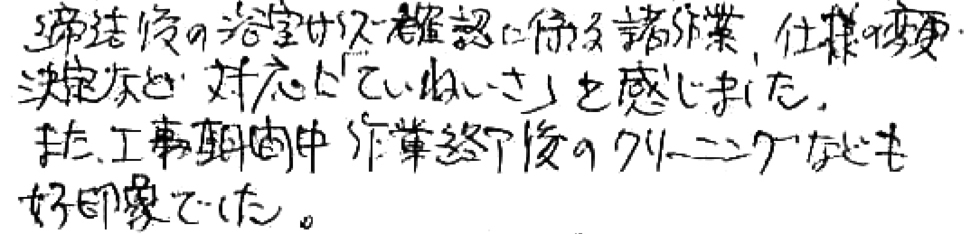 締結後の浴室サイズ確認に係る諸作業、仕様の変更・
決定など 対応に「ていねいさ」を感じました。
また、工事期間中 作業終了後のクリーニングなども
好印象でした。